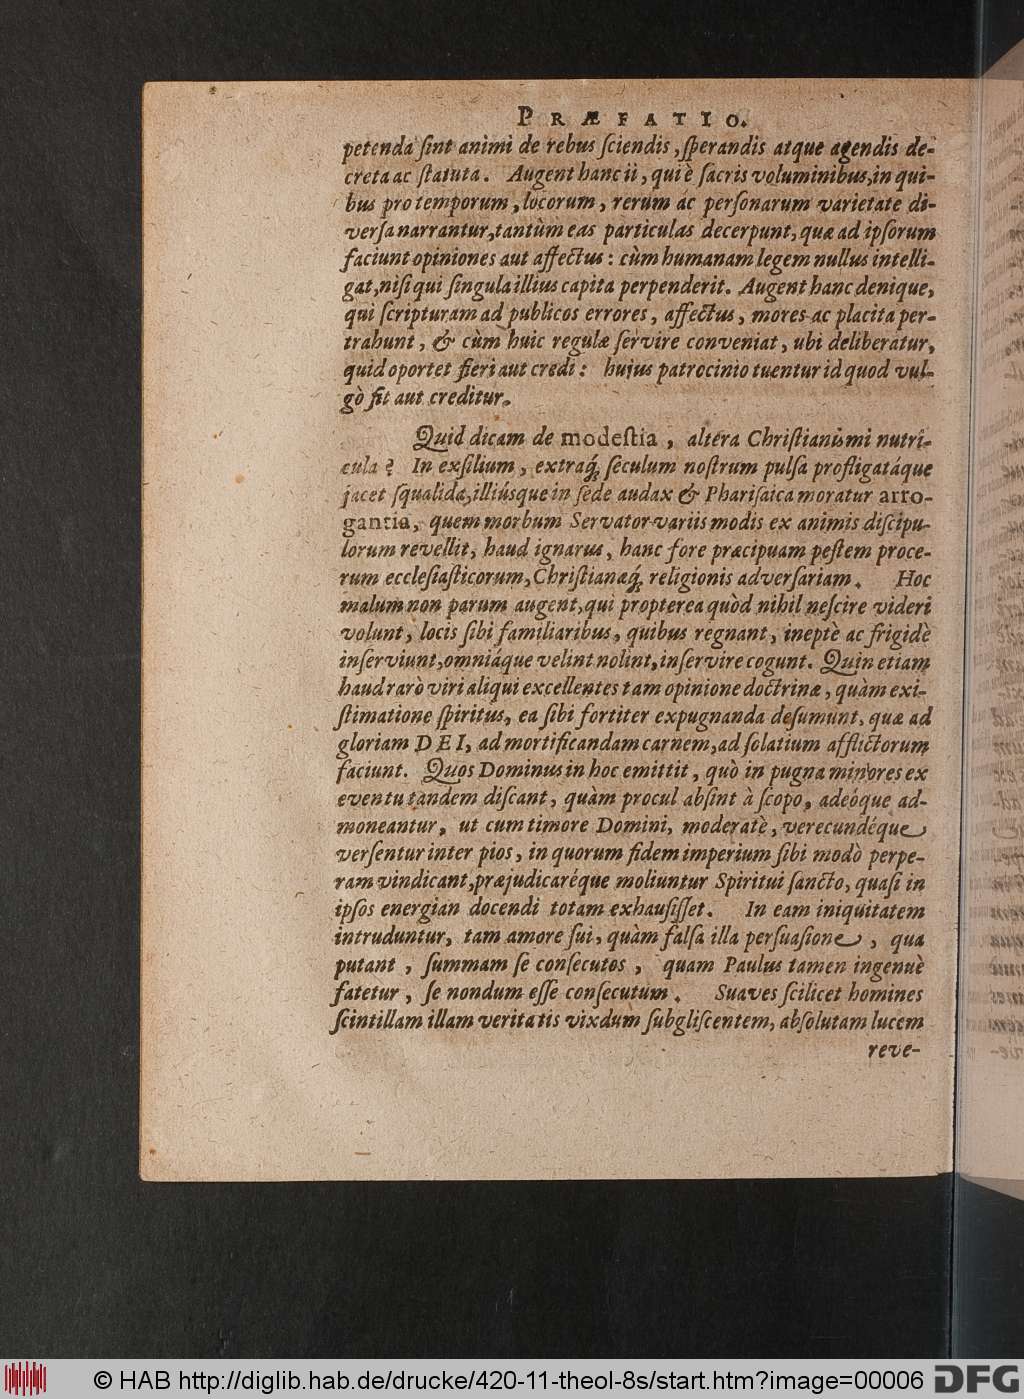 PRÆFATIO.
petenda ſint animi de rebus ſciendis, ſperandis atque agendis de-
creta ac ſtatuta. Augent hanc ii, qui è ſacris voluminibus, in qui-
bus pro temporum, locorum, rerum ac perſonarum varietate di-
verſa narrantur, tantùm eas particulas decerpunt, quæ ad ipſorum
faciunt opiniones aut affectus: cùm humanam legem nullus intelli-
gat, niſi qui ſingula illius capita perpenderit. Augent hanc denique,
qui ſcripturam ad publicos errores, affectus, mores ac placita per-
trahunt, & cùm huic regulæ ſervire conveniat, ubi deliberatur,
quid oportet fieri aut credi: hujus patrocinio tuentur id quod vul-
gò fit aut creditur.
Quid dicam de modeſtia, altera Chriſtianiſmi nutri-
cula? In exſilium, extraq́; ſeculum noſtrum pulſa profligatáque
jacet ſqualida, illiúsque in ſede audax & Phariſaica moratur arro-
gantia, quem morbum Servator variis modis ex animis diſcipu-
lorum revellit, haud ignarus, hanc fore præcipuam peſtem proce-
rum eccleſiaſticorum, Chriſtianæq́; religionis adverſariam. Hoc
malum non parum augent, qui propterea quòd nihil neſcire videri
volunt, locis ſibi familiaribus, quibus regnant, ineptè ac frigidè
inſerviunt, omniáque velint nolint, inſervire cogunt. Quin etiam
haud rarò viri aliqui excellentes tam opinione doctrinæ, quàm exi-
ſtimatione ſpiritus, ea ſibi fortiter expugnanda deſumunt, quæ ad
gloriam DEI, ad mortificandam carnem, ad ſolatium afflictorum
faciunt. Quos Dominus in hoc emittit, quò in pugna minores ex
eventu tandem diſcant, quàm procul abſint à ſcopo, adeóque ad-
moneantur, ut cum timore Domini, moderatè, verecundéque
verſentur inter pios, in quorum fidem imperium ſibi modò perpe-
ram vindicant, præjudicaréque moliuntur Spiritui ſancto, quaſi in
ipſos energian docendi totam exhauſiſſet. In eam iniquitatem
intruduntur, tam amore ſui, quàm falſa illa perſuaſione, qua
putant, ſummam ſe conſecutos, quam Paulus tamen ingenuè
fatetur, ſe nondum eſſe conſecutum. Suaves ſcilicet homines
ſcintillam illam veritatis vixdum ſubgliſcentem, abſolutam lucem
reve-
© HAB http://diglib.hab.de/drucke/420-11-theol-8s/start.htm?image=00006
DFG